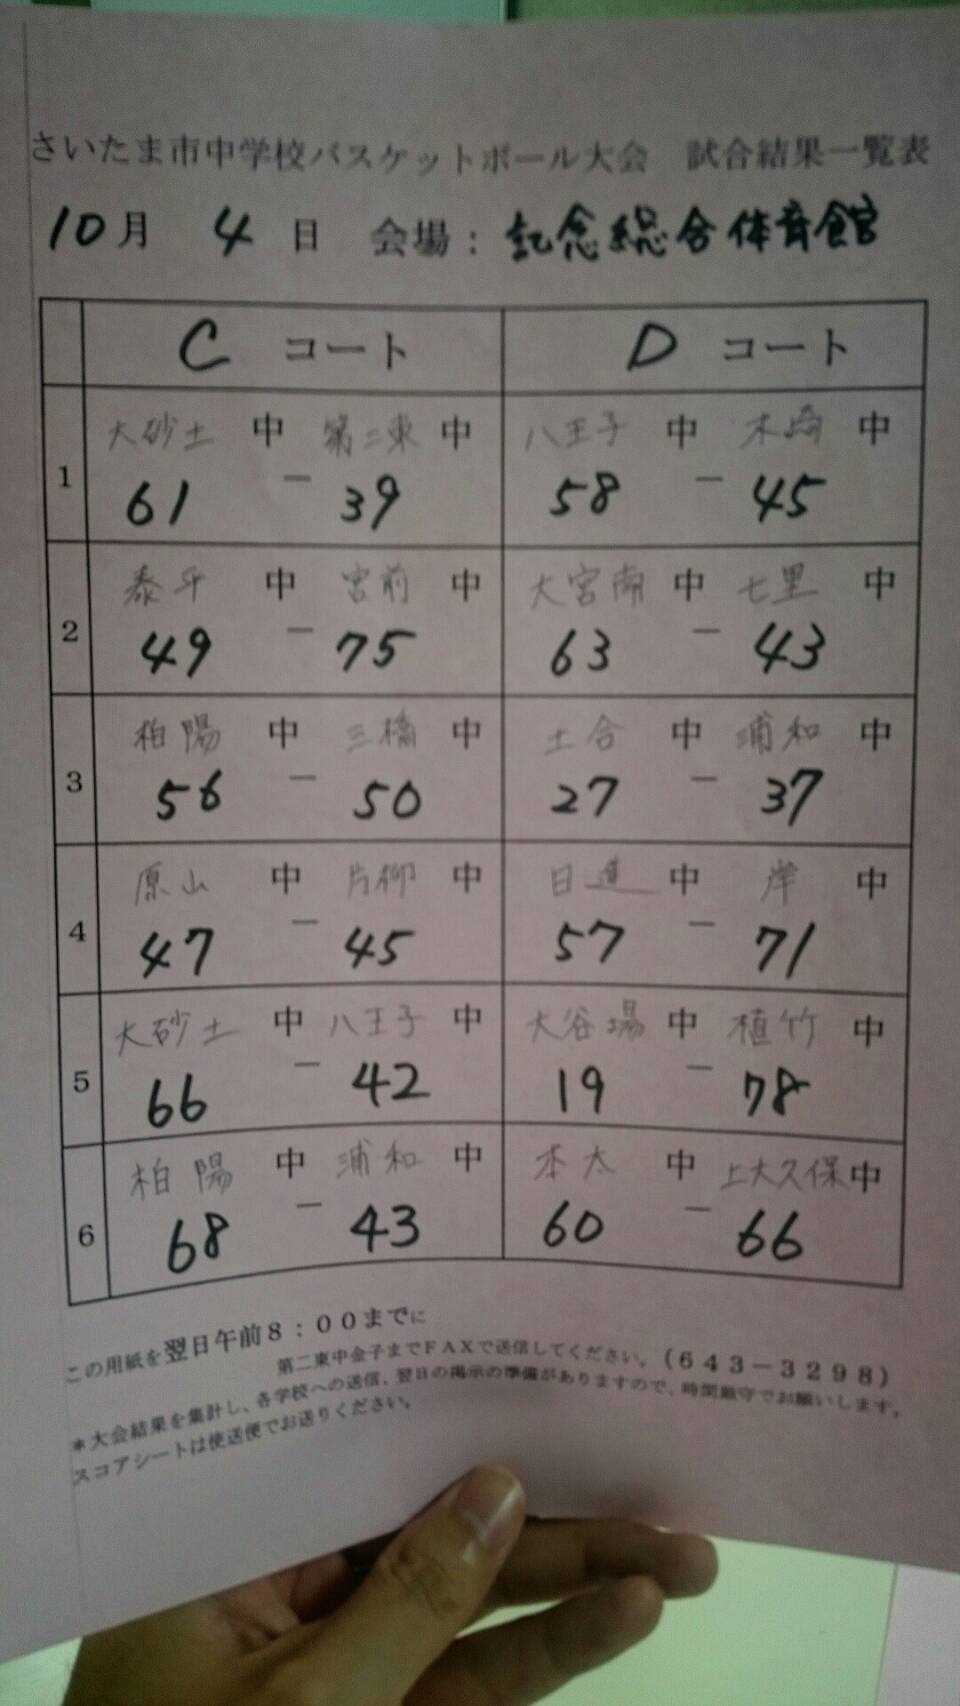 さいたま市中学校バスケットボール大会　試合結果一覧表
10月 4日 会場：記念総合体育館
C コート D コート
1 大砂土 中 － 第二東 中 八王子 中 － 木崎 中
61 39 58 45
2 泰平 中 － 宮前 中 大宮南 中 － 七里 中
49 75 63 43
3 柏陽 中 － 三橋 中 土合 中 － 浦和 中
56 50 27 37
4 原山 中 － 片柳 中 日進 中 － 岸 中
47 45 57 71
5 大砂土 中 － 八王子 中 大谷場 中 － 植竹 中
66 42 19 78
6 柏陽 中 － 浦和 中 本太 中 － 上大久保 中
68 43 60 66
この用紙を翌日午前８：００までに
第二東中金子までＦＡＸで送信してください。（６４３－３２９８）
＊大会結果を集計し、各学校への送信、翌日の掲示の準備がありますので、時間厳守でお願いします。
スコアシートは使送便でお送りください。